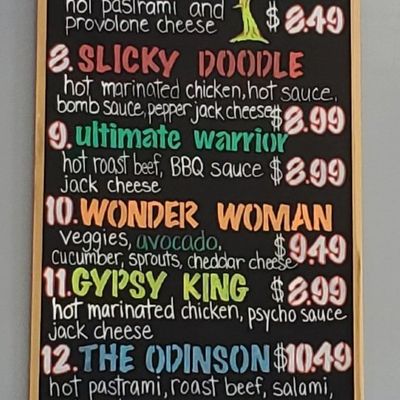 hot pastrami and
provolone cheese $8.49
8. SLICKY DOODLE
hot marinated chicken, hot sauce,
bomb sauce, pepper jack cheese $8.99
9. ultimate warrior
hot roast beef, BBQ sauce $8.99
jack cheese
10. WONDER WOMAN
veggies, avocado, $9.49
cucumber, sprouts, cheddar cheese
11. GYPSY KING $8.99
hot marinated chicken, psycho sauce
jack cheese
12. THE ODINSON $10.49
hot pastrami, roast beef, salami,